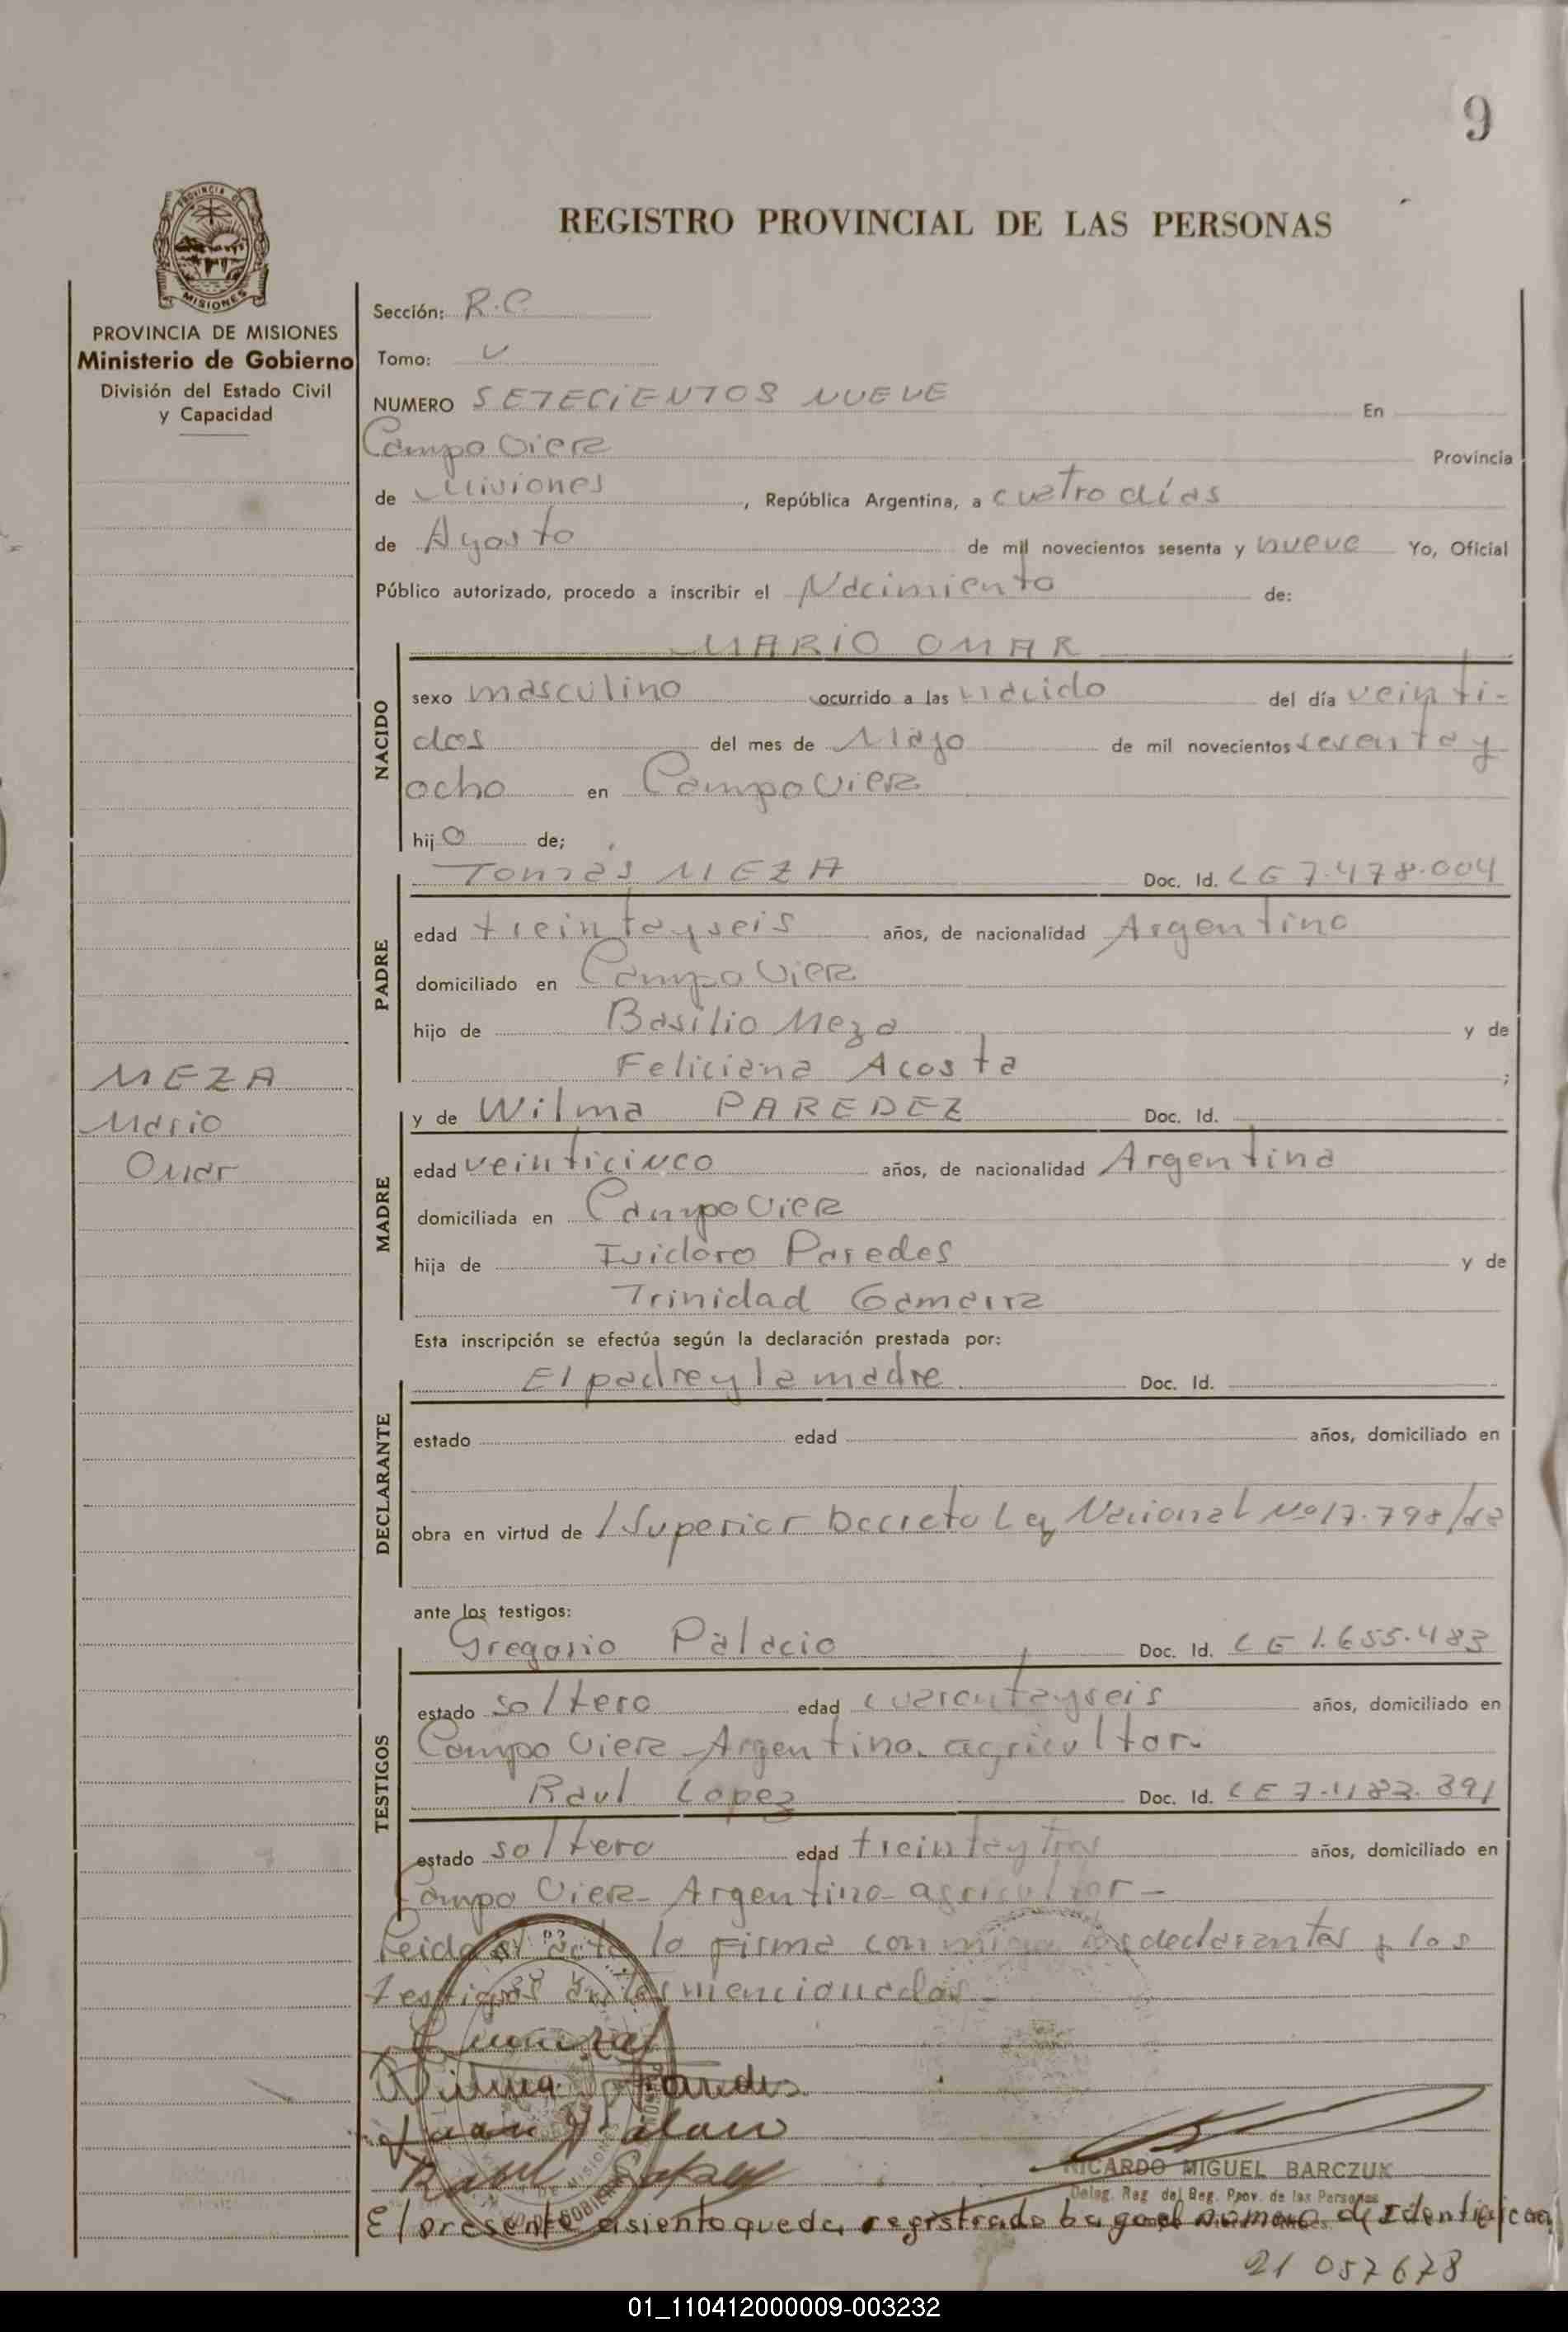 9
PROVINCIA DE
MISIONES
REGISTRO PROVINCIAL DE LAS PERSONAS
PROVINCIA DE MISIONES
Ministerio de Gobierno
División del Estado Civil
y Capacidad
Sección: R.C
Tomo: V
NUMERO SETECIENTOS NUEVE En
Campo Viera Provincia
de Misiones, República Argentina, a cuatro días
de Agosto de mil novecientos sesenta y nueve Yo, Oficial
Público autorizado, procedo a inscribir el Nacimiento de:
MARIO OMAR
NACIDO
sexo masculino ocurrido a las nacido del día veinti-
dos del mes de Mayo de mil novecientos sesenta y
ocho en Campo Viera
hijo de;
PADRE
Tomás MEZA Doc. Id. LE 7.478.004
edad treintayseis años, de nacionalidad Argentino
domiciliado en Campo Viera
hijo de Basilio Meza y de
Feliciana Acosta ;
MEZA
Mario
Omar
MADRE
y de Wilma PAREDEZ Doc. Id.
edad veinticinco años, de nacionalidad Argentina
domiciliada en Campo Viera
hija de Isidoro Paredes y de
Trinidad Gamarra
Esta inscripción se efectúa según la declaración prestada por:
DECLARANTE
El padre y la madre Doc. Id.
estado edad años, domiciliado en
obra en virtud de /Superior Decreto Ley Nacional Nº 17.798/
ante los testigos:
TESTIGOS
Gregorio Palacio Doc. Id. LE 1.655.483
estado soltero edad cuarentayseis años, domiciliado en
Campo Viera Argentino. agricultor.
Raul Lopez Doc. Id. LE
estado soltero edad treintaytres años, domiciliado en
Campo Viera - Argentino - agricultor -
Leida el acta lo firma conmigo los declarantes y los
testigos antes mencionados -
Wilma Paredes
RICARDO MIGUEL BARCZUK
Deleg. Reg. del Reg. Prov. de las Personas
El presente asiento queda registrado bajo el número de Identificacion
21 057678
01_110412000009-003232